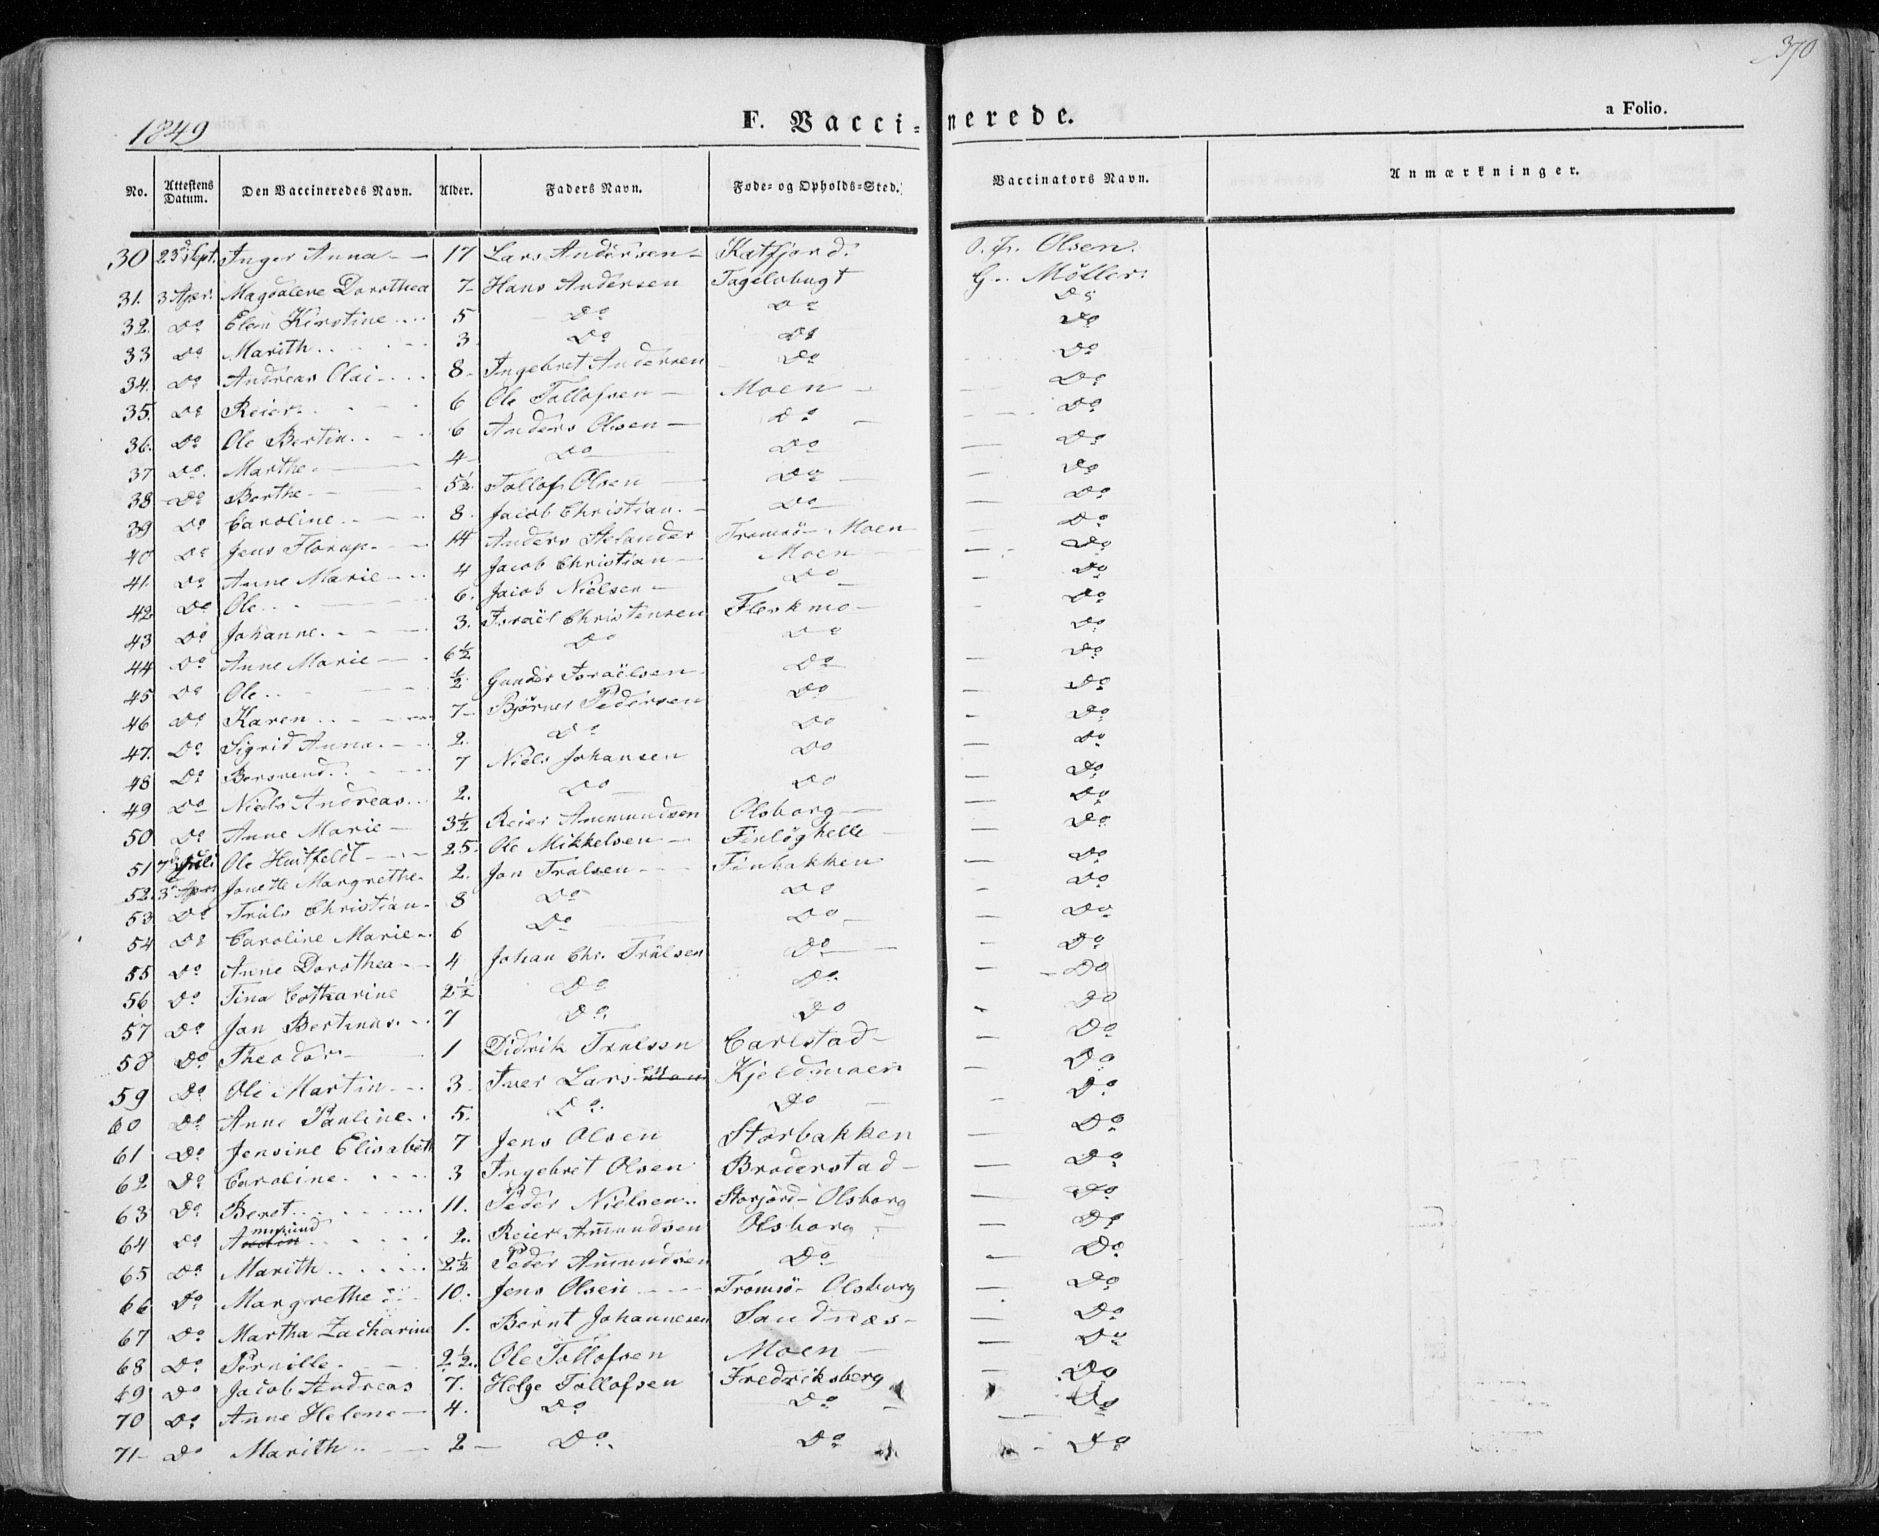 370
1849 F. Vacci- nerede. a Folio.
No. Attestens Datum. Den Vaccineredes Navn. Alder. Faders Navn. Føde- og Opholds-Sted. Vaccinators Navn. Anmærkninger.
30 23d Sept. Inger Anna 17 Lars Andersen Katfjord. Olsen.
31. 3 Apr. Magdalene Dorothea 7 Hans Andersen Tagelvbugt G. Möller.
32. Do Elen Kirstine 5 Do Do Do
33 Do Marith 3 Do Do Do
34. Do Andreas Olai 8 Ingebret Andersen Do Do
35. Do Reier 6 Ole Tollofsen Moen Do
36. Do Ole Bertin 6 Anders Olsen Do Do
37 Do Marthe 4 Do Do Do
38 Do Berthe 5½ Tollof Olsen Do Do
39 Do Caroline 8 Jacob Christian Do Do
40 Do Jens Florup 14 Anders Tromsö - Moen Do
41. Do Anne Marie 4 Jacob Christian Moen Do
42 Do Ole 6. Jacob Nielsen Do Do
43 Do Johanne 3. Israël Christensen Fleskmo Do
44 Do Anne Marie 6½ Do Do Do
45 Do Ole ½ Gunder Israëlsen Do Do
46 Do Karen 7 Bjørnes Pedersen Do Do
47. Do Sigrid Anna 2. Do Do Do
48 Do Bersvend 7 Niels Johansen Do Do
49 Do Niels Andreas 2. Do Do Do
50 Do Anne Marie 3½ Reier Ammundsen Olsborg Do
51 7d Juli Ole Hartfeldt 25 Ole Mikkelsen Do
52. 3d Apr. Jonette Margrethe 2. Jon Trulsen Finbakken Do
53 Do Truls Christian 8 Do Do Do
54 Do Caroline Marie 6 Do Do Do
55 Do Anne Dorothea 4 Johan Chr. Trulsen Do Do
56 Do Tina Catharine 2½ Do Do Do
57 Do Jan Bertinus 7 Do Do Do
58 Do Theodor 1 Didrik Trulsen Carlstad Do
59 Do Ole Martin 3 Iver Lars Kjeldmoen Do
60 Do Anne Pauline 5. Do. Do Do
61 Do Jensine Elisabeth 7 Jens Olsen Storbakken Do
62 Do Caroline 3 Ingebret Olsen Broderstad Do
63 Do Beret 11. Peder Nielsen Storjord - Olsborg Do
64 Do Ammund 2. Reier Amundsen Olsborg Do
65 Do Marith 2½ Peder Amundsen Do Do
66 Do Margrethe 10. Jens Olsen Tromsö - Olsborg Do
67 Do Martha Zacharine 1. Bernt Johannesen Sandnæs Do
68 Do Pernille 2½ Ole Tollofsen Moen Do
69 Do Jacob Andreas 7. Helge Tollofsen Fredriksberg Do
70 Do Anne Helene 4. Do Do Do
71 Do Marith 2 Do. Do Do